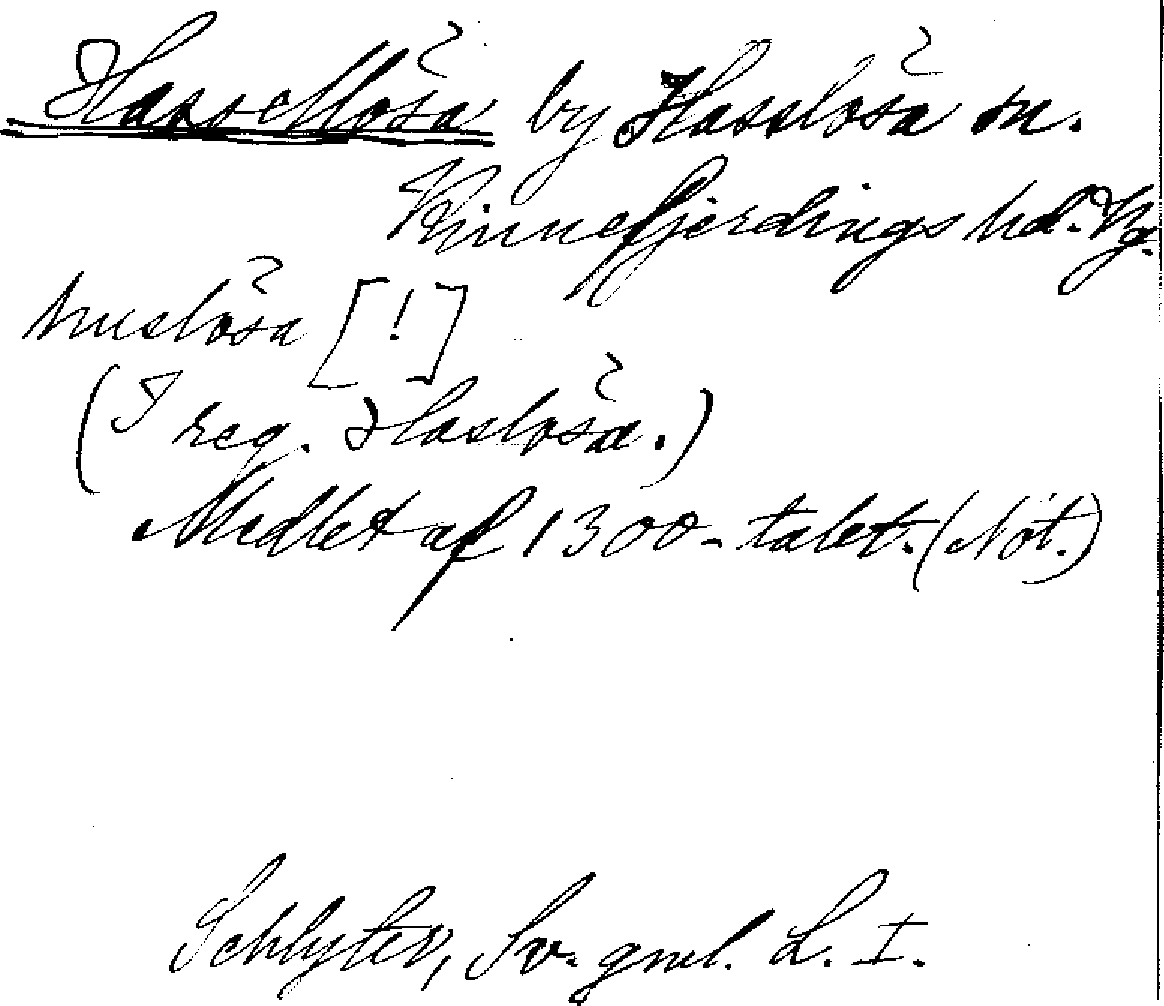 Hassellösa by Hasslösa sn.
Kinnefjerdings hd. Vg.
huslösa [!]
(I reg. Haslösa.)
Midlet af 1300-talet. (Nöt.)
Schlyter, Sv. gml. L. I.